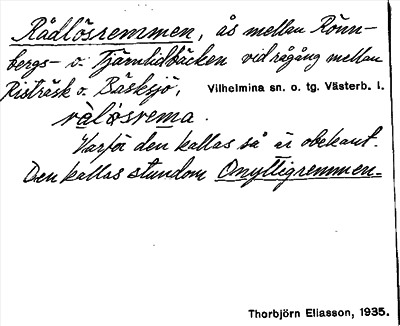 Rådlösremmen, ås mellan Rönn-
bergs- o. Tjärnlidbäcken vid rågång mellan
Risträsk o. Bäsksjö, Vilhelmina sn. o. tg. Västerb. l.
rålösrema.
Varför den kallas så är obekant.
Den kallas stundom Onyttigremmen.
Thorbjörn Eliasson, 1935.